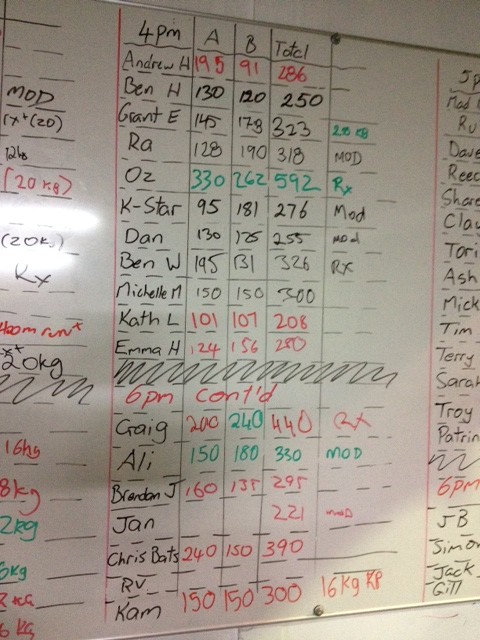 4pm A B Total
Andrew H 195 91 286
Ben H 130 120 250
Grant E 145 178 323 20 KB
Ra 128 190 318 MOD
Oz 330 262 592 Rx
K-Star 95 181 276 Mod
Dan 130 125 255 mod
Ben W 195 131 326 RX
Michelle M 150 150 300
Kath L 101 107 208
Emma H 124 156 280
6pm cont'd
Craig 200 240 440 RX
Ali 150 180 330 MOD
Brendan J 160 135 295
Jan 221 MOD
Chris Bats 240 150 390
RV
Kam 150 150 300 16kg KB
MOD
rx+(20)
12kg
(20kg)
(20kg)
Rx
400m run+
20kg
16kg
8kg
2kg
6kg
2 kg
6 kg
5p
Mad
Ru
Dave
Reec
Share
Clau
Tori
Ash
Mick
Tim
Terry
Sarah
Troy
Patrin
6pm
JB
Simon
Jack
Gill